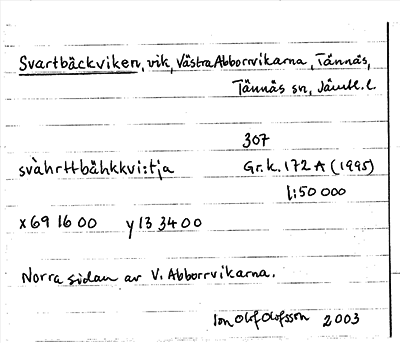 Svartbäckviken, vik, Västra Abborrvikarna, Tännäs,
Tännäs sn, Jämtl. l.
307
svàhrttbähkkvi:tja Gr.k. 172 A (1995)
1:50 000
x 69 16 00 y 13 34 00
Norra sidan av V. Abborrvikarna.
Jon Olof Olofsson 2003